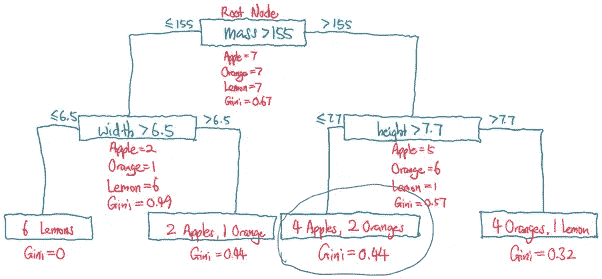 Root Node
≤155
mass>155
>155
Apple=7
Orange=7
Lemon=7
Gini=0.67
≤6.5
width>6.5
>6.5
Apple=2
Orange=1
Lemon=6
Gini=0.49
≤7.7
height>7.7
>7.7
Apple=5
Orange=6
Lemon=1
Gini=0.57
6 Lemons
Gini=0
2 Apples, 1 Orange
Gini=0.44
4 Apples, 2 Oranges
Gini=0.44
4 Oranges, 1 Lemon
Gini=0.32